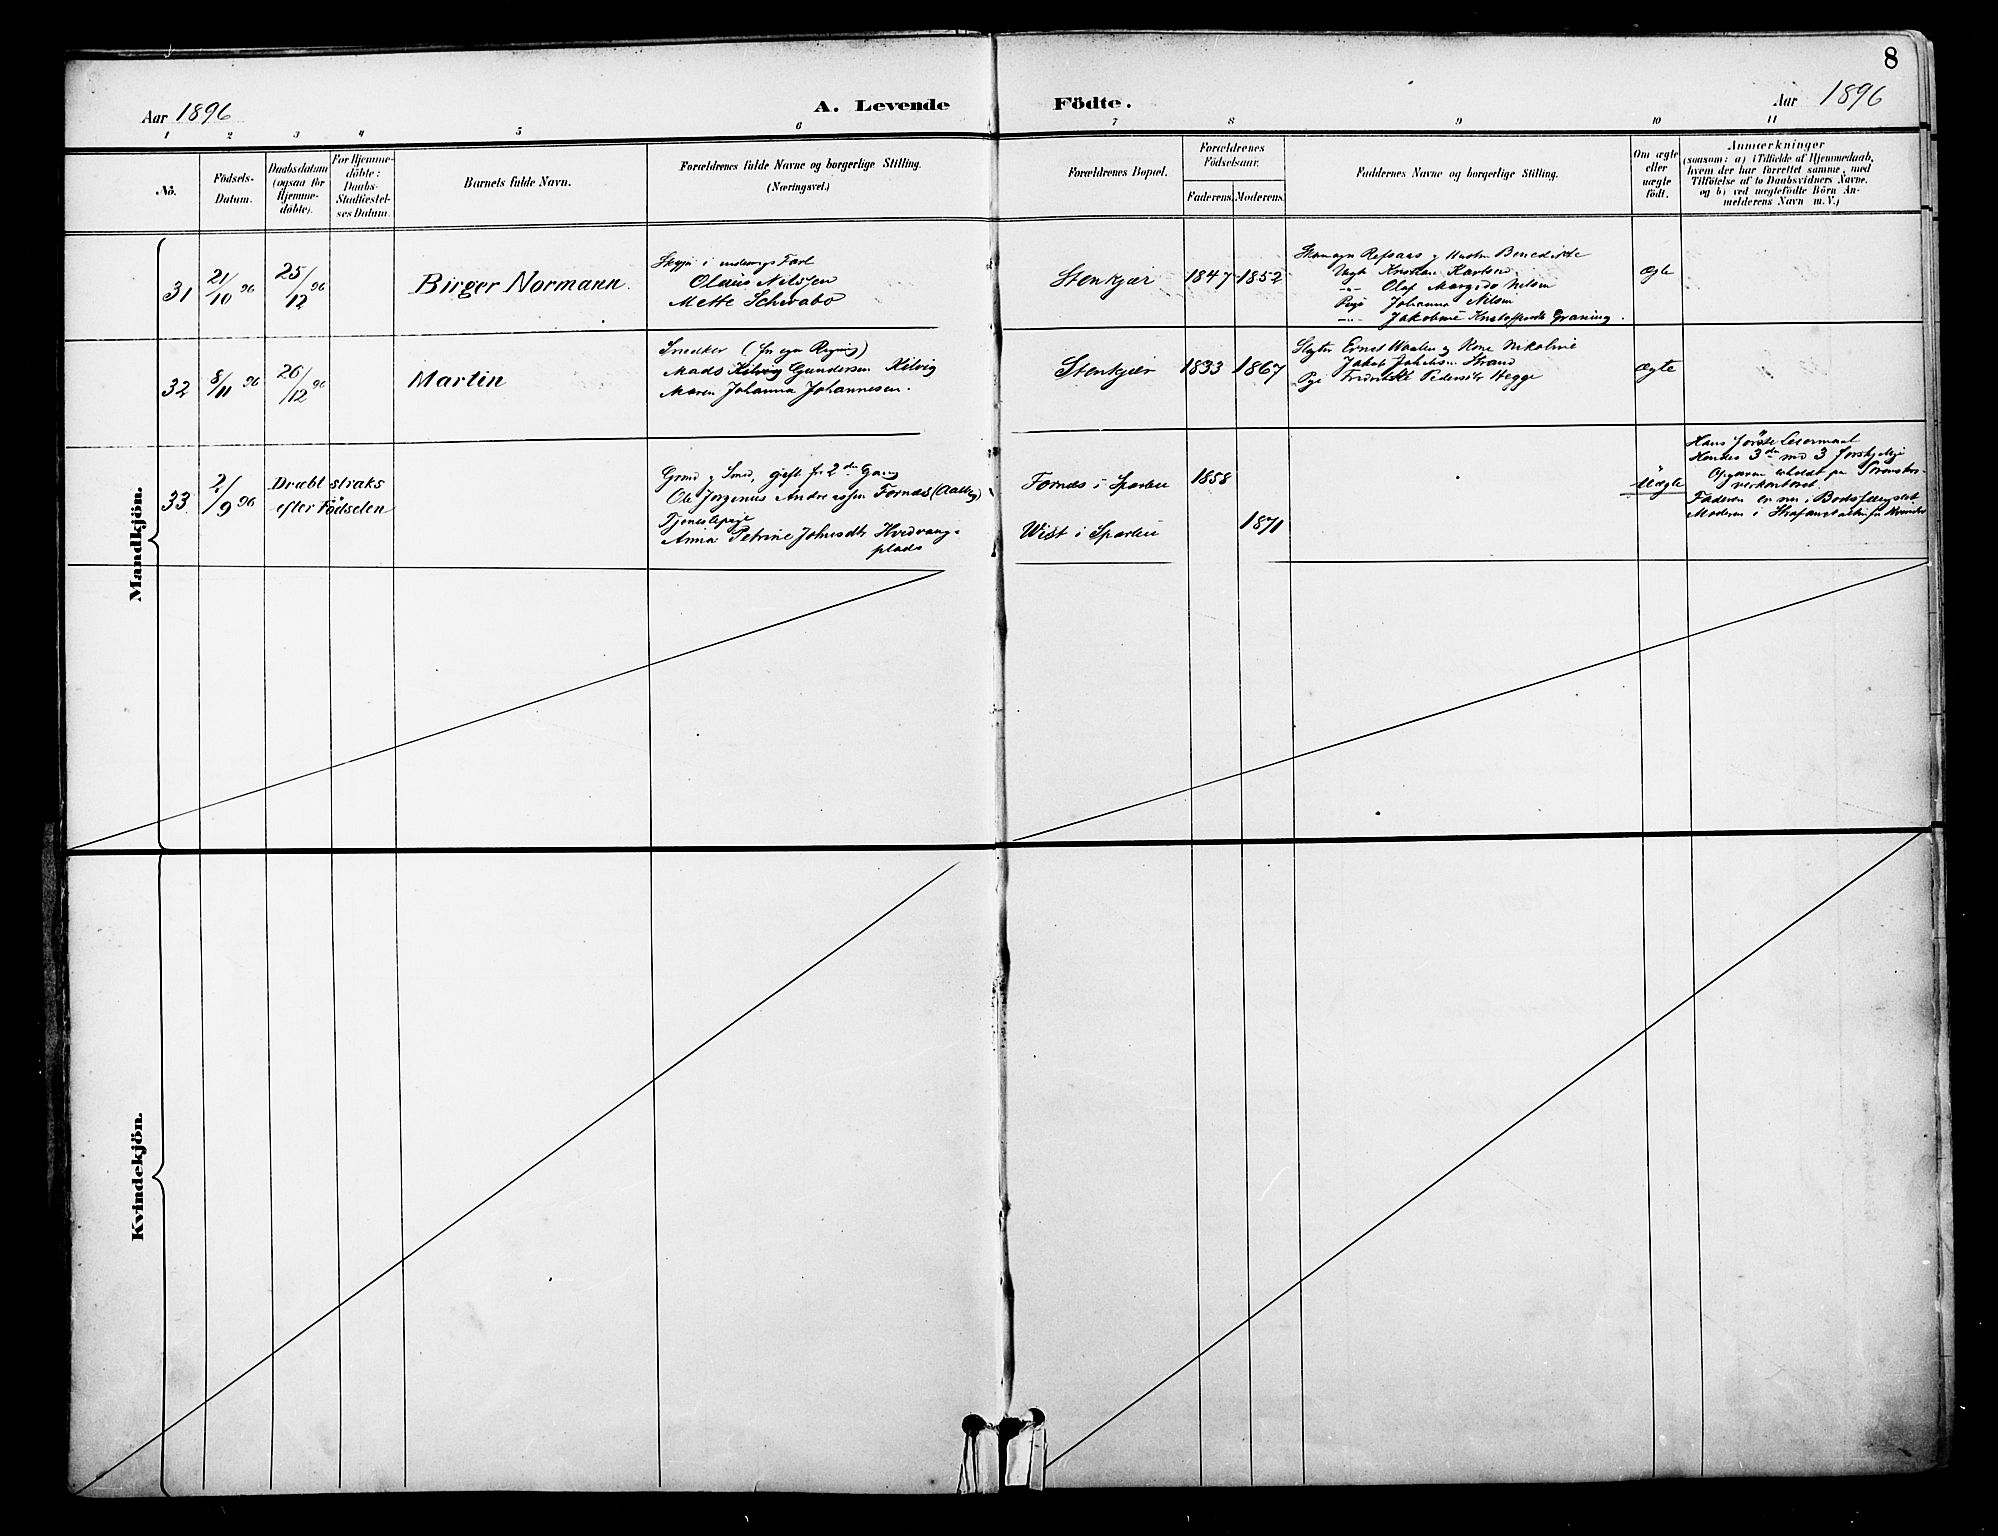 8
Aar 1896
A. Levende Födte.
Aar 1896
1 2 3 4 5 6 7 8 9 10 11
No.
Födsels-
Datum.
Daabsdatum
(ogsaa for
Hjemme-
döbte).
For Hjemme-
döbte:
Daabs-
Stadfæstel-
ses Datum.
Barnets fulde Navn.
Forældrenes fulde Navne og borgerlige Stilling.
(Næringsvei.)
Forældrenes Bopæl.
Forældrenes
Födselsaar.
Faderens. Moderens.
Faddernes Navne og borgerlige Stilling.
Om ægte
eller
uægte
födt.
Anmærkninger
(saasom: a) i Tilfælde af Hjemmedaab,
hvem der har forrettet samme, med
Tilföielse af to Daabsvidners Navne.
og b) ved uægtefödte Börn An-
melderens Navn m. V.)
Mandkjön.
31
21/10 96
25/12 96
Birger Normann
Olaus Nilssen
Mette Schwabo
Stenkjær
1847 1852
Refsaas og Hustru Benedikte
Kristian Karlsen
Olaf Nilsen
Pige Johanna Nilsen
ægte
32
8/11 96
26/12 96
Martin
Snedker (for egen Regning)
Mads Gundersen Kilvig
Maren Johanna Johannesen.
Stenkjær
1833 1867
Ernst Waalen og Kone Nikoline
Jakob Strand
Hegge
ægte
33
2/9 96
Dræbt straks
efter Födselen
Smed, gift for 2den Gang
Ole Jörgenius Andreassen Fornæs
Tjenestepige
Anna Petrine Johnsdtr Hvedvang-
plads
Fornæs i Sparbu
Wist i Sparbu
1858
1871
Uægte
Hans förste Leiermaal
Hendes 3de med 3 forskjellige
Faderen er nu i Bodsfængslet
Moderen i Strafanstalten for Kvinder
Kvindekjön.